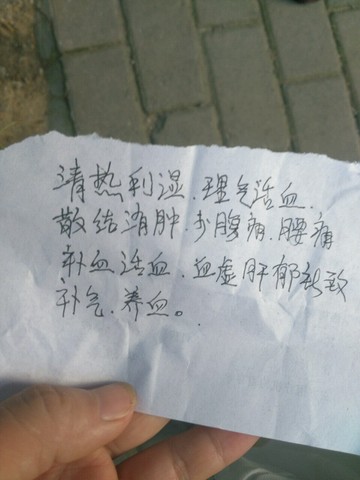 清热利湿、理气活血、
散结消肿、少腹痛、腰痛
补血活血、血虚肝郁所致
补气、养血。